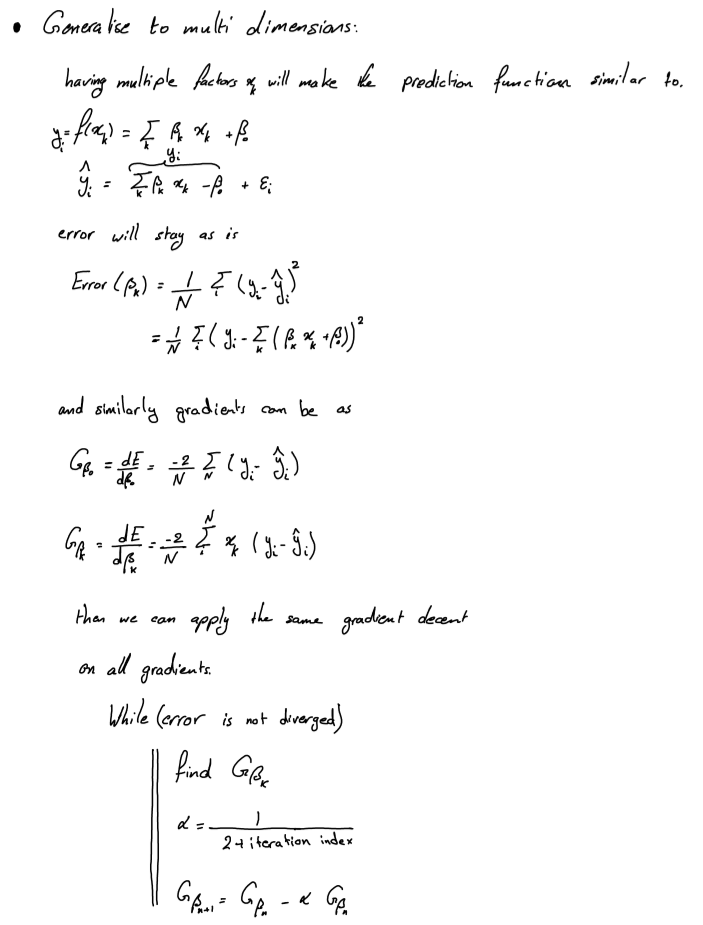 • Generalise to multi dimensions:
having multiple factors x_k will make the prediction function similar to.
y_i = f(x_k) = Σ_k β_k x_k + β_0
ŷ_i = Σ_k β_k x_k - β_0 + ε_i
y_i
error will stay as is
Error (β_k) = 1/N Σ_i (y_i - ŷ_i)^2
= 1/N Σ_i ( y_i - Σ_k ( β_k x_k + β_0))^2
and similarly gradients can be as
G_β_0 = dE/dβ_0 = -2/N Σ_N ( y_i - ŷ_i )
G_β_k = dE/dβ_k = -2/N Σ_i^N x_k ( y_i - ŷ_i )
then we can apply the same gradient decent
on all gradients.
While (error is not diverged)
find G_β_k
α = 1/(2 + iteration index)
G_β_n+1 = G_β_n - α G_β_n